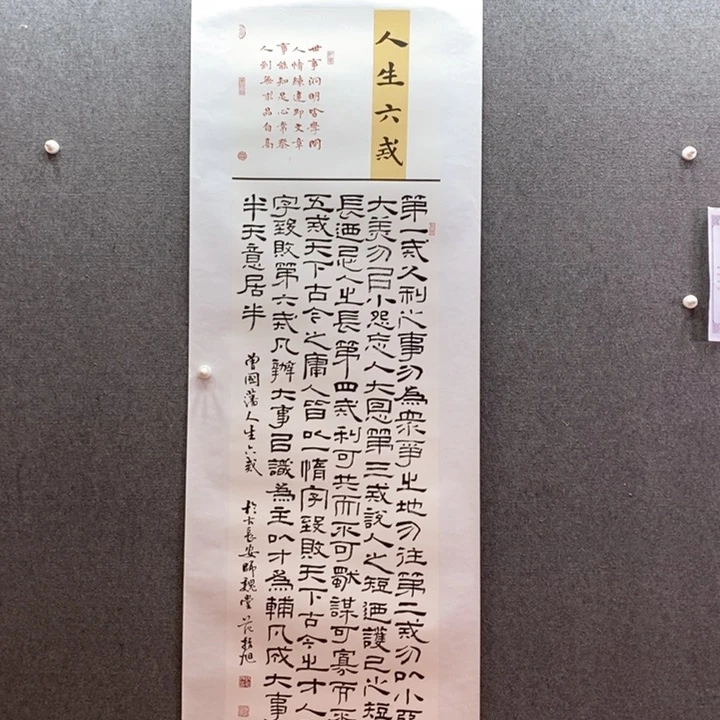 人生六戒
世事洞明皆學問
人情練達即文章
事能知足心常泰
人到無求品自高
第一戒久利之事勿為眾爭之地勿往第二戒勿以小惡
大美勿以小怨忘人大恩第三戒說人之短迺護己之短
長迺忌人之長第四戒利可共而不可獨謀可寡而不
五戒天下古今之庸人皆以一惰字致敗天下古今之才人
字致敗第六戒凡辦大事以識為主以才為輔凡成大事
半天意居半
曾國藩人生六戒
於古長安師魏堂